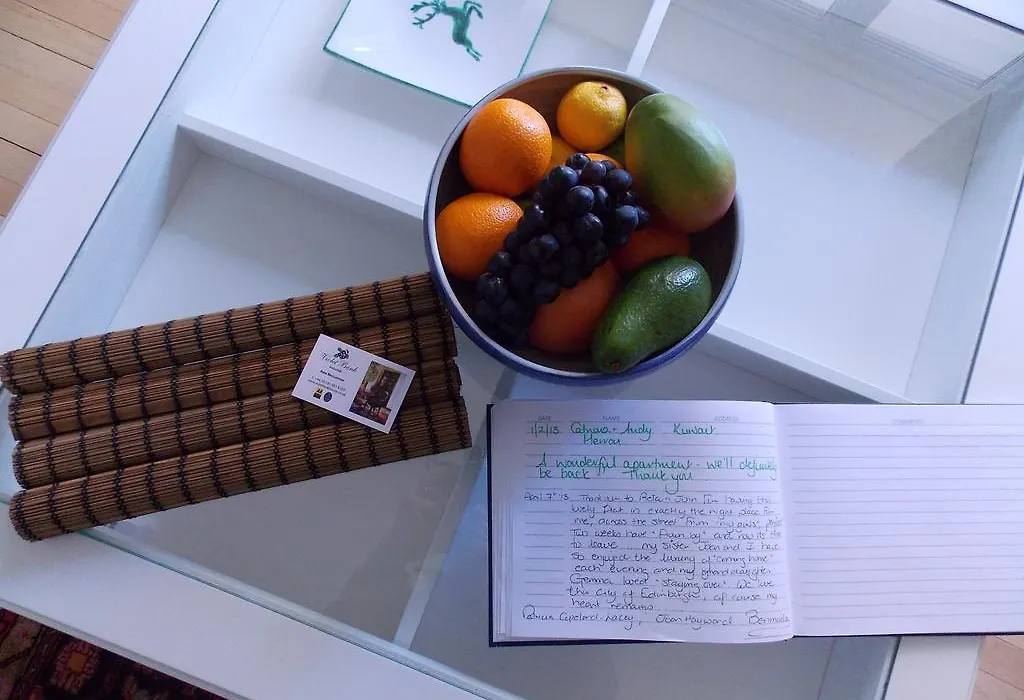 Violet Bank
DATE NAME ADDRESS
1/2/13 Catriona + Andy Kuwait
Herron
A wonderful apartment - we'll definitely
be back Thank you
April 7th '13 Thank you to Peta + John I'm having this
lovely flat in exactly the right place for
me, across the street from "my girls",
Two weeks have "flown by" and now its time
to leave ... my sister Joan and I have
so enjoyed the luxury of "coming home"
each evening and my granddaughter
Gemma loved "staying over". We love
this City of Edinburgh, of course my
heart remains.
Patricia Copeland-Lacey, Joan Hayward Bermuda
COMMENT